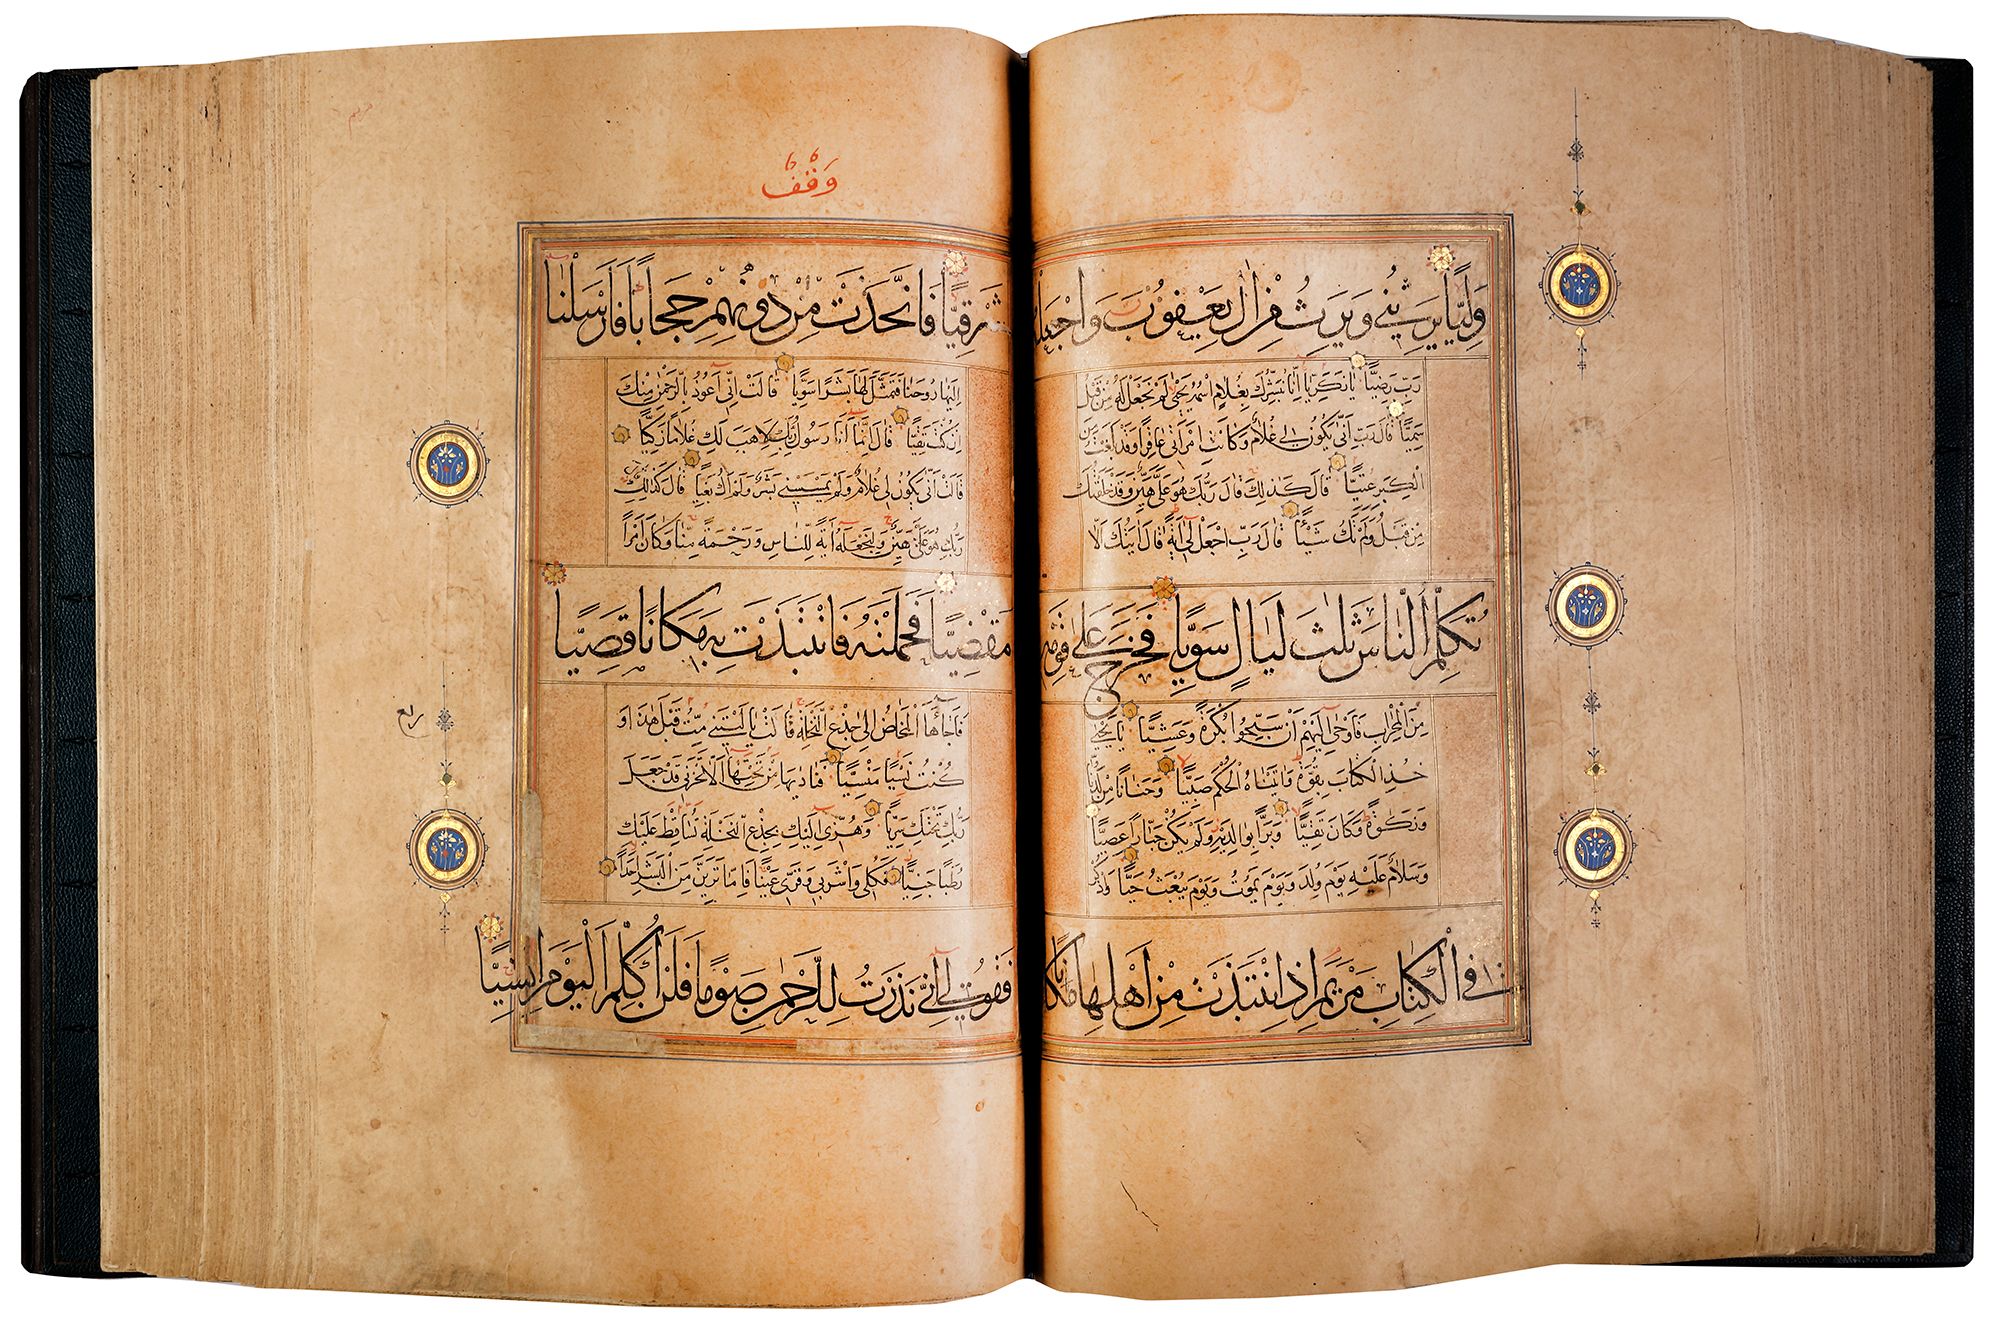 وَلِيًّا يَرِثُنِي وَيَرِثُ مِنْ آلِ يَعْقُوبَ وَاجْعَلْهُ
رَبِّ رَضِيًّا يَا زَكَرِيَّا إِنَّا نُبَشِّرُكَ بِغُلَامٍ اسْمُهُ يَحْيَىٰ لَمْ نَجْعَلْ لَهُ مِنْ قَبْلُ
سَمِيًّا قَالَ رَبِّ أَنَّىٰ يَكُونُ لِي غُلَامٌ وَكَانَتِ امْرَأَتِي عَاقِرًا وَقَدْ بَلَغْتُ مِنَ
الْكِبَرِ عِتِيًّا قَالَ كَذَٰلِكَ قَالَ رَبُّكَ هُوَ عَلَيَّ هَيِّنٌ وَقَدْ خَلَقْتُكَ
مِنْ قَبْلُ وَلَمْ تَكُ شَيْئًا قَالَ رَبِّ اجْعَلْ لِي آيَةً قَالَ آيَتُكَ أَلَّا
تُكَلِّمَ النَّاسَ ثَلٰثَ لَيَالٍ سَوِيًّا فَخَرَجَ عَلَىٰ قَوْمِهِ
مِنَ الْمِحْرَابِ فَأَوْحَىٰ إِلَيْهِمْ أَنْ سَبِّحُوا بُكْرَةً وَعَشِيًّا يَا يَحْيَىٰ
خُذِ الْكِتَابَ بِقُوَّةٍ وَآتَيْنَاهُ الْحُكْمَ صَبِيًّا وَحَنَانًا مِنْ لَدُنَّا
وَزَكٰوةً وَكَانَ تَقِيًّا وَبَرًّا بِوَالِدَيْهِ وَلَمْ يَكُنْ جَبَّارًا عَصِيًّا
وَسَلَامٌ عَلَيْهِ يَوْمَ وُلِدَ وَيَوْمَ يَمُوتُ وَيَوْمَ يُبْعَثُ حَيًّا وَاذْكُرْ
فِي الْكِتَابِ مَرْيَمَ إِذِ انْتَبَذَتْ مِنْ أَهْلِهَا مَكَانًا
مريم
وَقْف
شَرْقِيًّا فَاتَّخَذَتْ مِنْ دُونِهِمْ حِجَابًا فَأَرْسَلْنَا
إِلَيْهَا رُوحَنَا فَتَمَثَّلَ لَهَا بَشَرًا سَوِيًّا قَالَتْ إِنِّي أَعُوذُ بِالرَّحْمٰنِ مِنْكَ
إِنْ كُنْتَ تَقِيًّا قَالَ إِنَّمَا أَنَا رَسُولُ رَبِّكِ لِأَهَبَ لَكِ غُلَامًا زَكِيًّا
قَالَتْ أَنَّىٰ يَكُونُ لِي غُلَامٌ وَلَمْ يَمْسَسْنِي بَشَرٌ وَلَمْ أَكُ بَغِيًّا قَالَ كَذَٰلِكِ
رَبُّكِ هُوَ عَلَيَّ هَيِّنٌ وَلِنَجْعَلَهُ آيَةً لِلنَّاسِ وَرَحْمَةً مِنَّا وَكَانَ أَمْرًا
مَقْضِيًّا فَحَمَلَتْهُ فَانْتَبَذَتْ بِهِ مَكَانًا قَصِيًّا
فَأَجَاءَهَا الْمَخَاضُ إِلَىٰ جِذْعِ النَّخْلَةِ قَالَتْ يَا لَيْتَنِي مِتُّ قَبْلَ هٰذَا وَ
كُنْتُ نَسْيًا مَنْسِيًّا فَنَادٰيهَا مِنْ تَحْتِهَا أَلَّا تَحْزَنِي قَدْ جَعَلَ
رَبُّكِ تَحْتَكِ سَرِيًّا وَهُزِّي إِلَيْكِ بِجِذْعِ النَّخْلَةِ تُسَاقِطْ عَلَيْكِ
رُطَبًا جَنِيًّا فَكُلِي وَاشْرَبِي وَقَرِّي عَيْنًا فَإِمَّا تَرَيِنَّ مِنَ الْبَشَرِ أَحَدًا
فَقُولِي إِنِّي نَذَرْتُ لِلرَّحْمٰنِ صَوْمًا فَلَنْ أُكَلِّمَ الْيَوْمَ إِنْسِيًّا